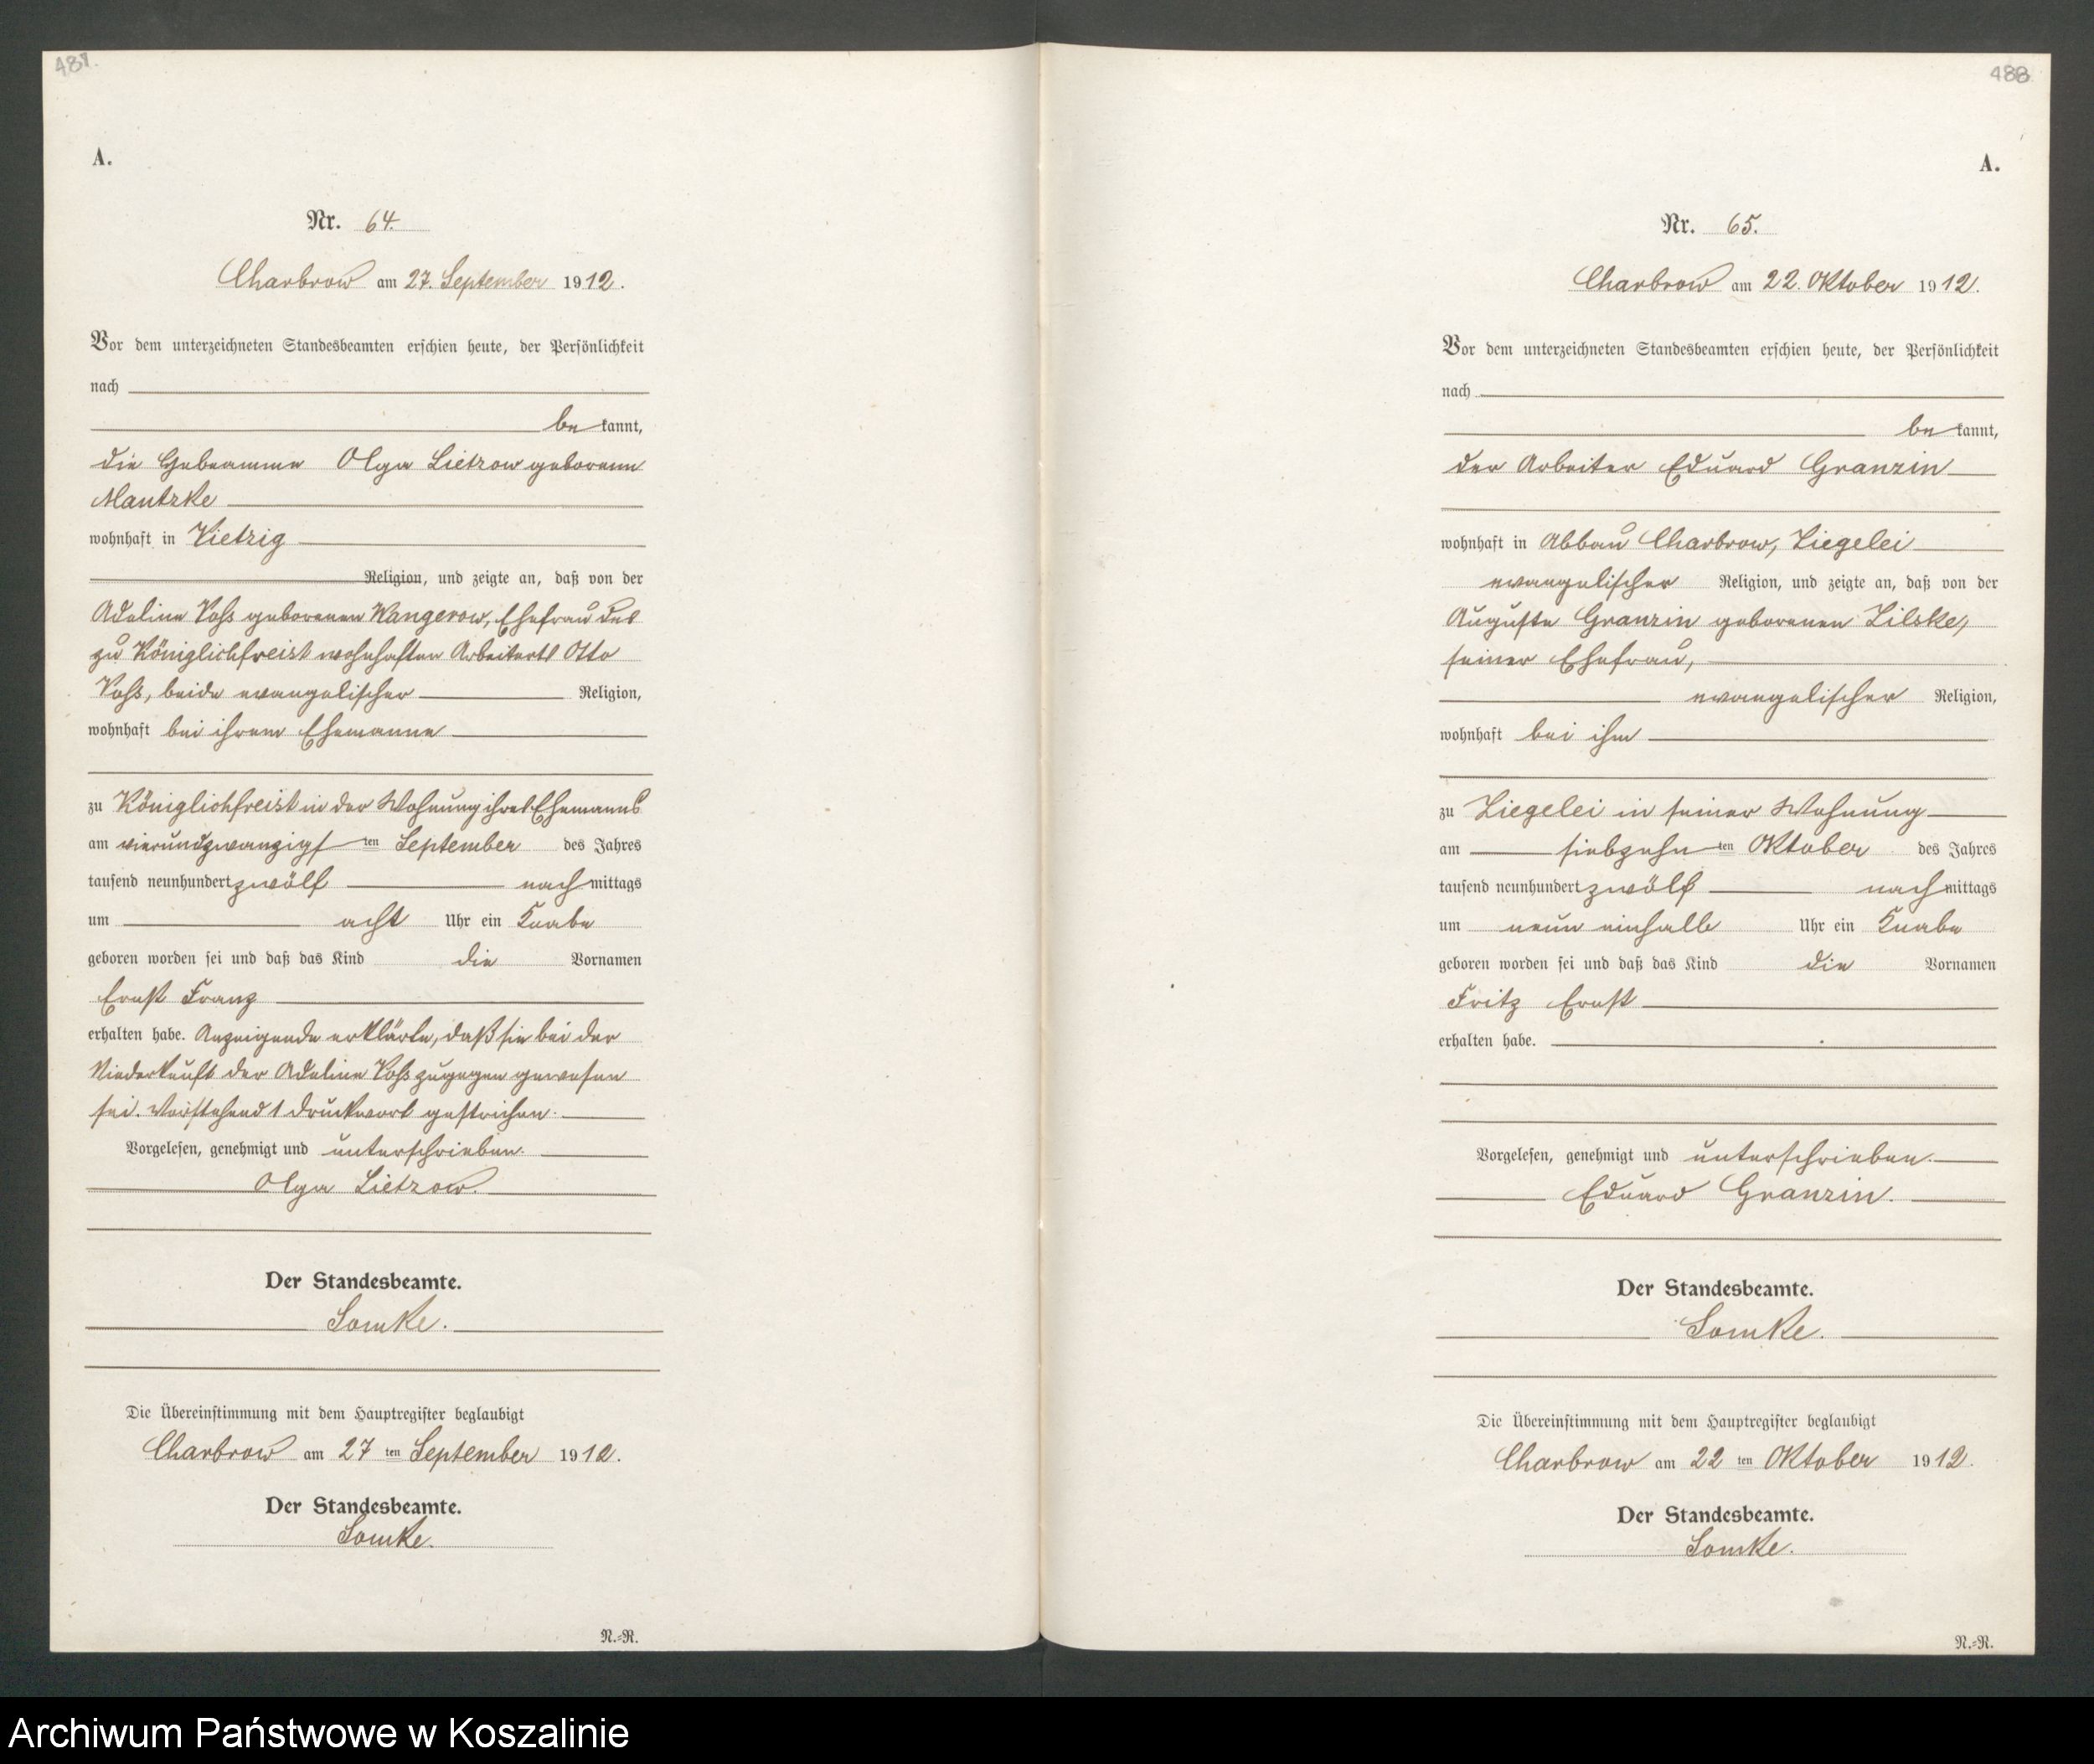 487.
A.
Nr. 64.
Charbrow am 27. September 1912.
Vor dem unterzeichneten Standesbeamten erschien heute, der Persönlichkeit
nach
be kannt,
die Hebeamme Olga Lietzow geborene
Mantzke
wohnhaft in Vietzig
Religion, und zeigte an, daß von der
Adeline Voß geborenen Wangerow, Ehefrau des
zu Königlichfreist wohnhaften Arbeiters Otto
Voß, beide evangelischer Religion,
wohnhaft bei ihrem Ehemanne
zu Königlichfreist in der Wohnung ihres Ehemanns
am vierundzwanzigsten September des Jahres
tausend neunhundert zwölf nachmittags
um acht Uhr ein Knabe
geboren worden sei und daß das Kind die Vornamen
Ernst Franz
erhalten habe. Anzeigende erklärte, daß sie bei der
Niederkunft der Adeline Voß zugegen gewesen
sei. Vorstehend 1 Druckwort gestrichen.
Vorgelesen, genehmigt und unterschrieben.
Olga Lietzow.
Der Standesbeamte.
Somke.
Die Übereinstimmung mit dem Hauptregister beglaubigt
Charbrow am 27 ten September 1912.
Der Standesbeamte.
Somke.
N.=R.
488
A.
Nr. 65.
Charbrow am 22. Oktober 1912.
Vor dem unterzeichneten Standesbeamten erschien heute, der Persönlichkeit
nach
be kannt,
der Arbeiter Eduard Granzin
wohnhaft in Abbau Charbrow, Ziegelei
evangelischer Religion, und zeigte an, daß von der
Auguste Granzin geborenen Zilske,
seiner Ehefrau,
evangelischer Religion,
wohnhaft bei ihm
zu Ziegelei in seiner Wohnung
am siebzehnten Oktober des Jahres
tausend neunhundert zwölf nachmittags
um neun einhalb Uhr ein Knabe
geboren worden sei und daß das Kind die Vornamen
Fritz Ernst
erhalten habe.
Vorgelesen, genehmigt und unterschrieben.
Eduard Granzin.
Der Standesbeamte.
Somke.
Die Übereinstimmung mit dem Hauptregister beglaubigt
Charbrow am 22 ten Oktober 1912.
Der Standesbeamte.
Somke.
N.=R.
Archiwum Państwowe w Koszalinie